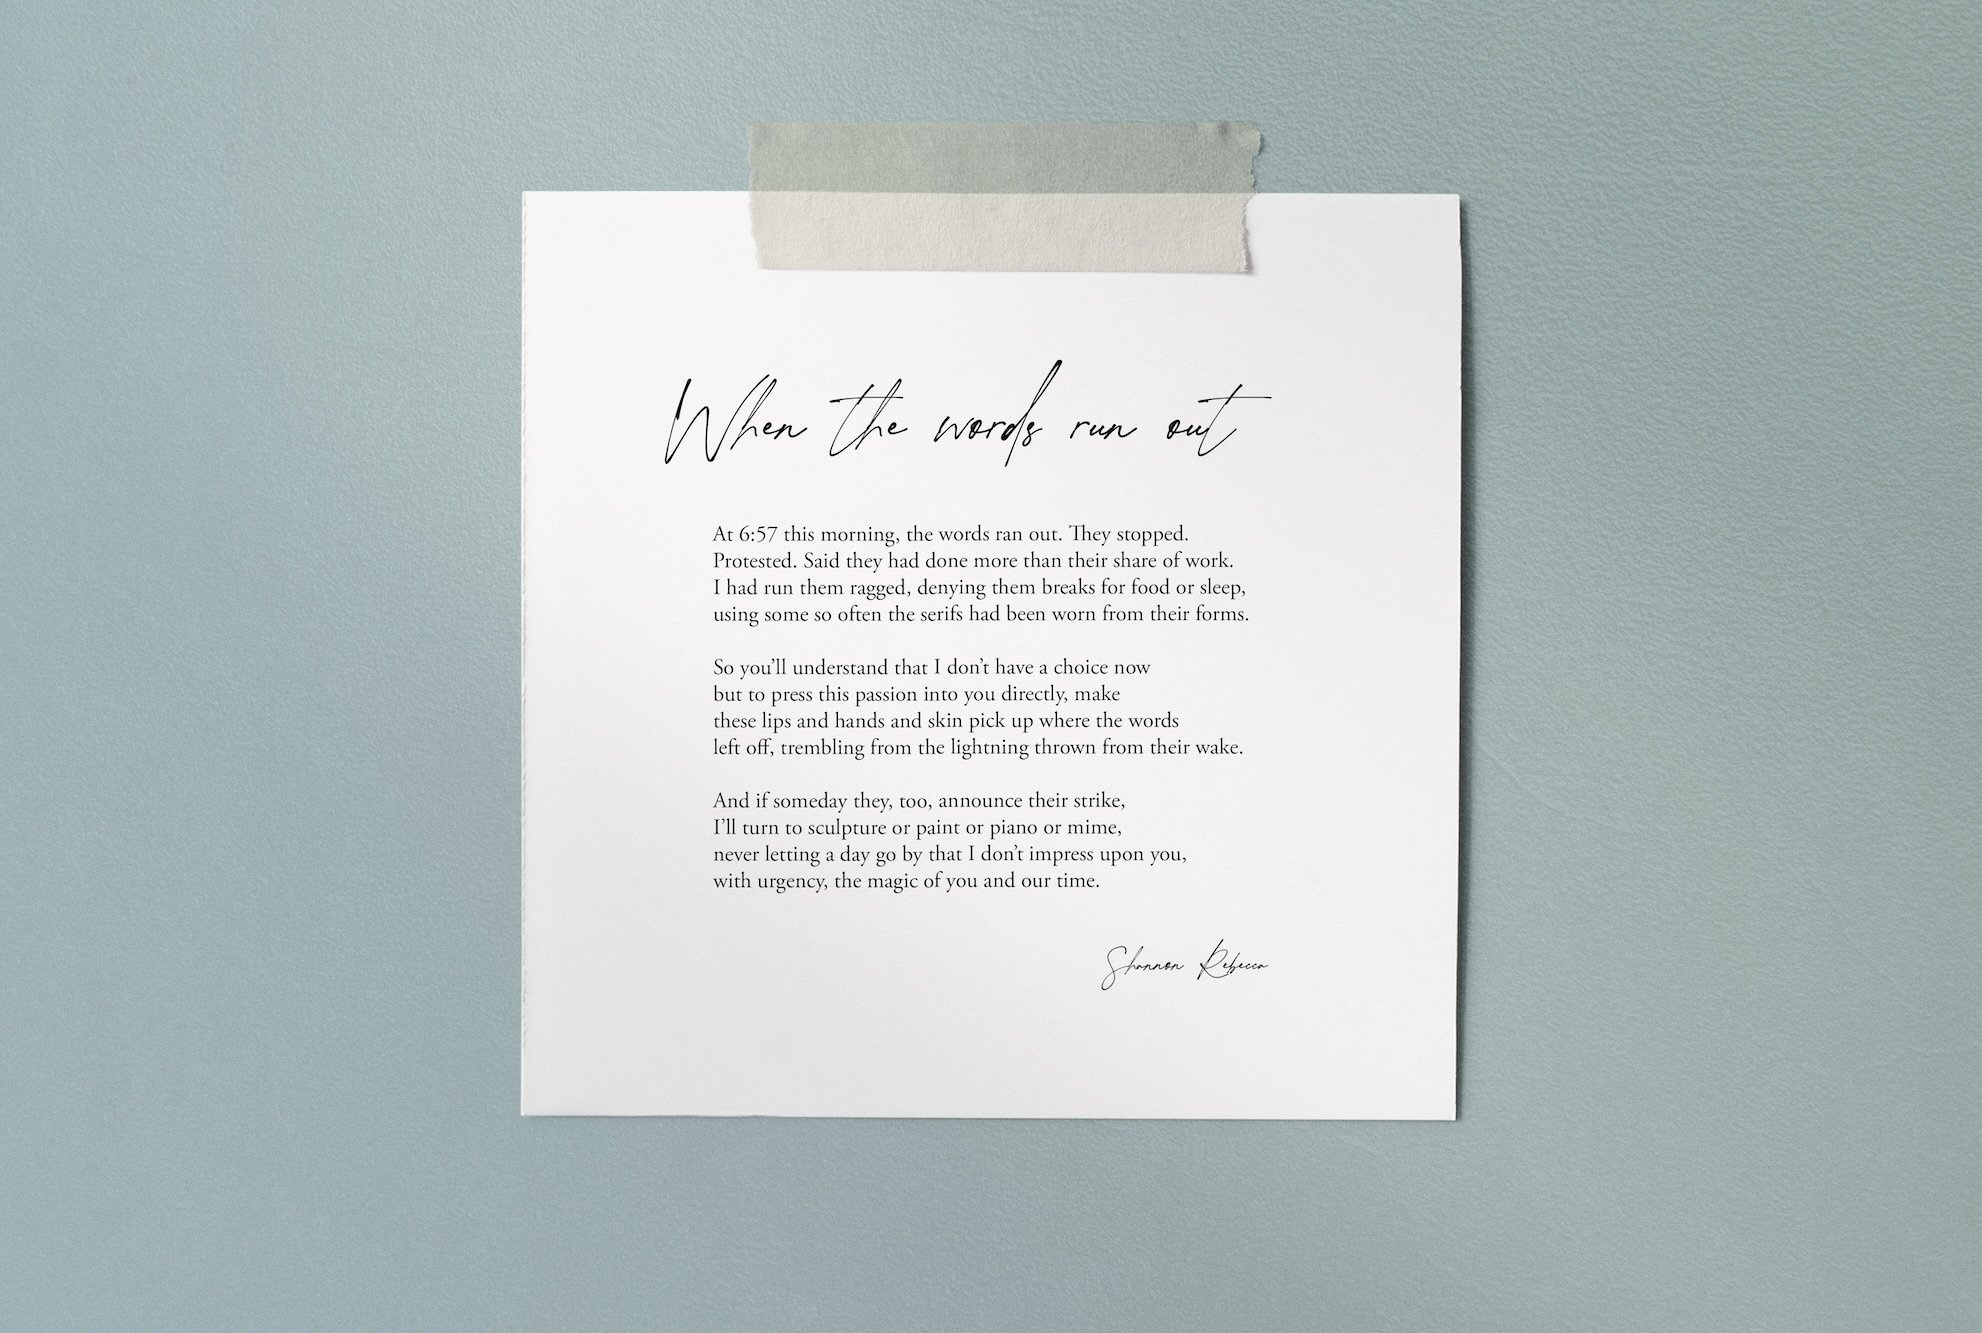 When the words run out
At 6:57 this morning, the words ran out. They stopped.
Protested. Said they had done more than their share of work.
I had run them ragged, denying them breaks for food or sleep,
using some so often the serifs had been worn from their forms.
So you’ll understand that I don’t have a choice now
but to press this passion into you directly, make
these lips and hands and skin pick up where the words
left off, trembling from the lightning thrown from their wake.
And if someday they, too, announce their strike,
I’ll turn to sculpture or paint or piano or mime,
never letting a day go by that I don’t impress upon you,
with urgency, the magic of you and our time.
Shannon Rebecca